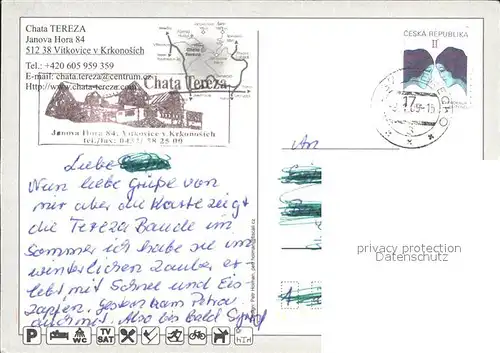 Chata TEREZA
Janova Hora 84
512 38 Vitkovice v Krkonoších
Tel.: +420 605 959 359
E-mail: chata.tereza@centrum.cz
Http://www.chata-tereza.com
Chata Tereza
Janova Hora 84, Vitkovice v Krkonoších
tel./fax: 0432/58 25 00
ČESKÁ REPUBLIKA
II
17
Liebe
Nun liebe Grüße von
mir aber die Karte zeigt
die Tereza Baude im
Sommer ich habe sie im
winterlichen Zauber er-
lebt mit Schnee und Eis-
zapfen. Gestern kam Petra
auch mit. Also bis bald
An
privacy protection
Datenschutz
P
WC
TV
SAT